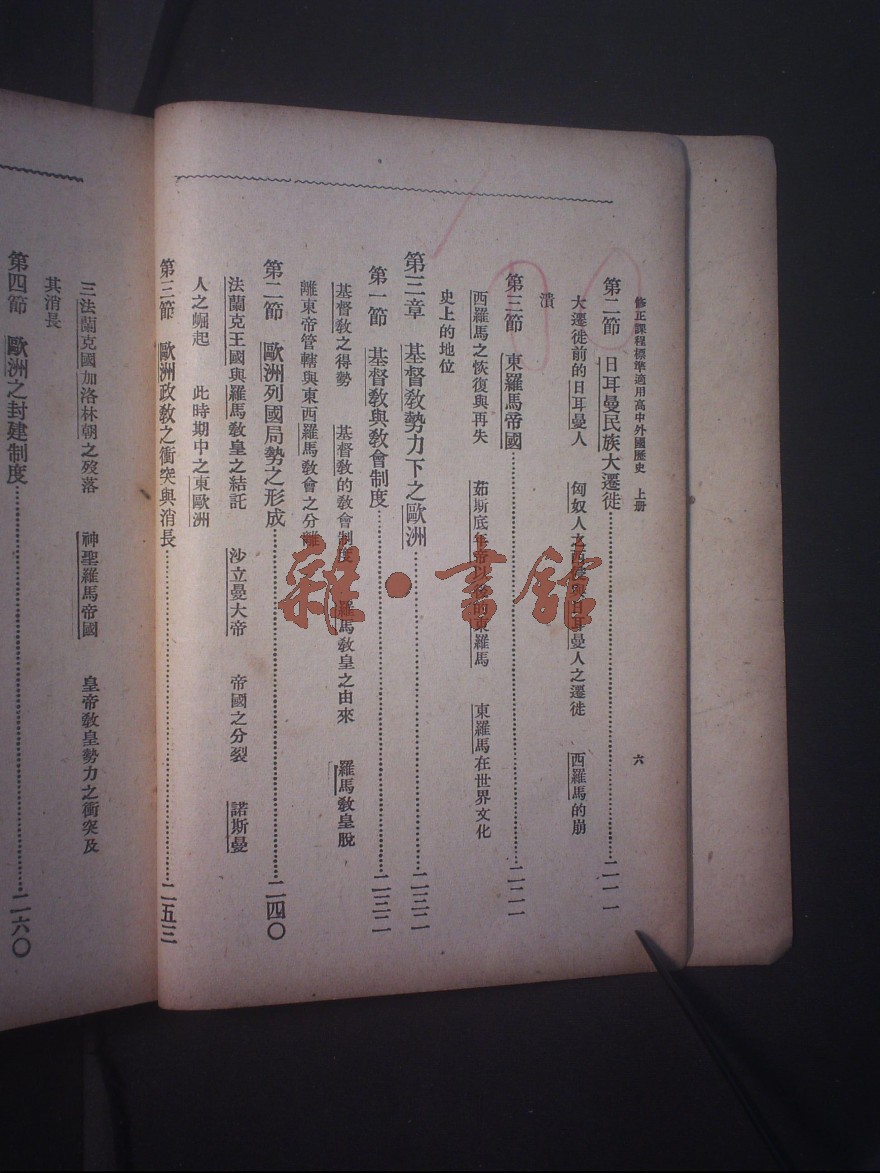 修正課程標準適用高中外國歷史　上册
六
第二節　日耳曼民族大遷徙……二一一
大遷徙前的日耳曼人　匈奴人之西侵與日耳曼人之遷徙　西羅馬的崩
潰
第三節　東羅馬帝國……二二一
西羅馬之恢復與再失　茹斯底年帝以後的東羅馬　東羅馬在世界文化
史上的地位
第三章　基督敎勢力下之歐洲……二三二
第一節　基督敎與敎會制度……二三二
基督敎之得勢　基督敎的敎會制度　羅馬敎皇之由來　羅馬敎皇脫
離東帝管轄與東西羅馬敎會之分離
第二節　歐洲列國局勢之形成……二四〇
法蘭克王國與羅馬敎皇之結託　沙立曼大帝　帝國之分裂　諾斯曼
人之崛起　此時期中之東歐洲
第三節　歐洲政敎之衝突與消長……二五三
三法蘭克國加洛林朝之歿落　神聖羅馬帝國　皇帝敎皇勢力之衝突及
其消長
第四節　歐洲之封建制度……二六〇
雜·書館